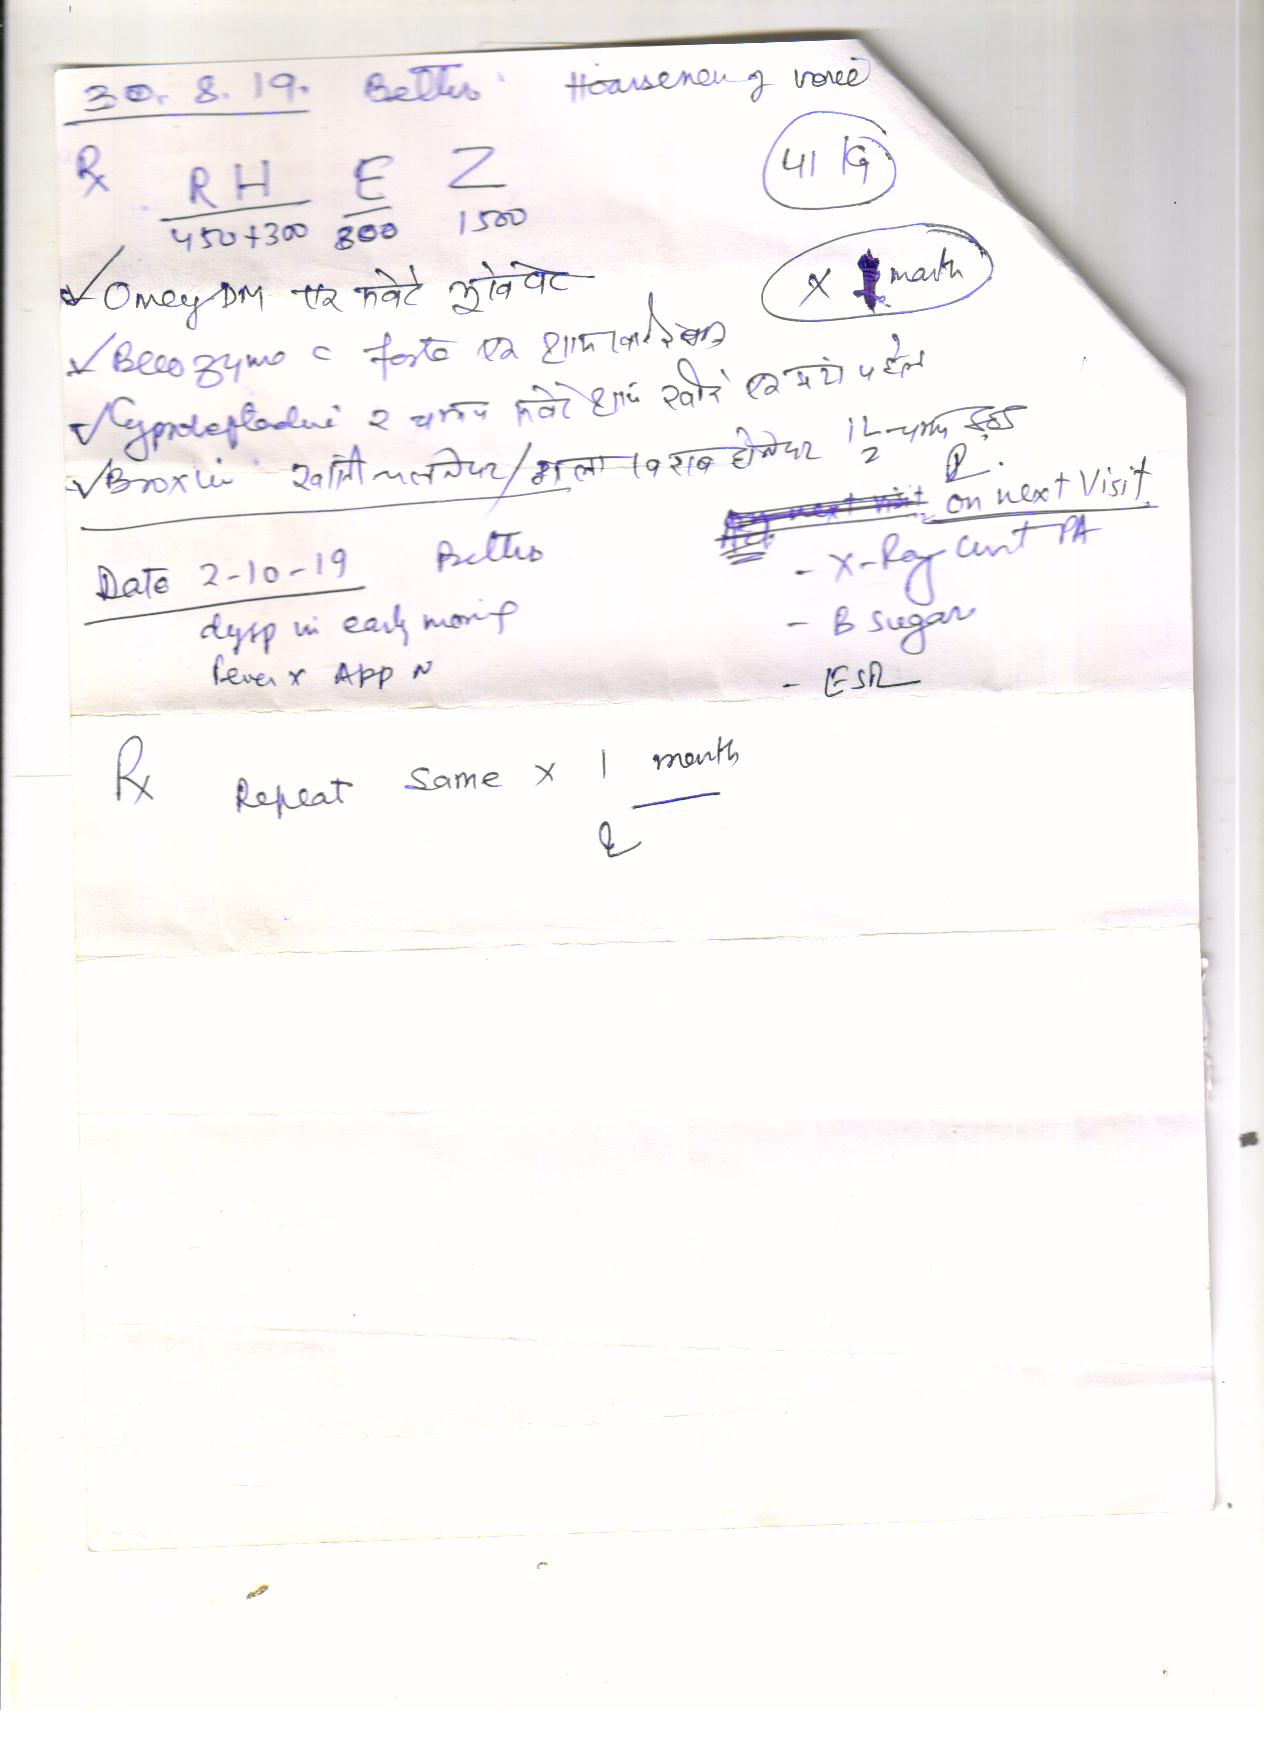 30.8.19. Better Hoarseness of voice
41 kg
Rx RH E Z
450+300 800 1500
x 1 month
Omez DM एक सवेरे भूखे पेट
Becozyme c forte एक शाम
Cyproheptadine २ चम्मच सवेरे शाम एक घंटे पहले
खाँसी चलनेपर/गला खराब होनेपर 1-2
on next Visit
Date 2-10-19 Better
- X-Ray Chest PA
dysp in early morning
- B sugar
fever x App N
- ESR
Rx Repeat Same x 1 month